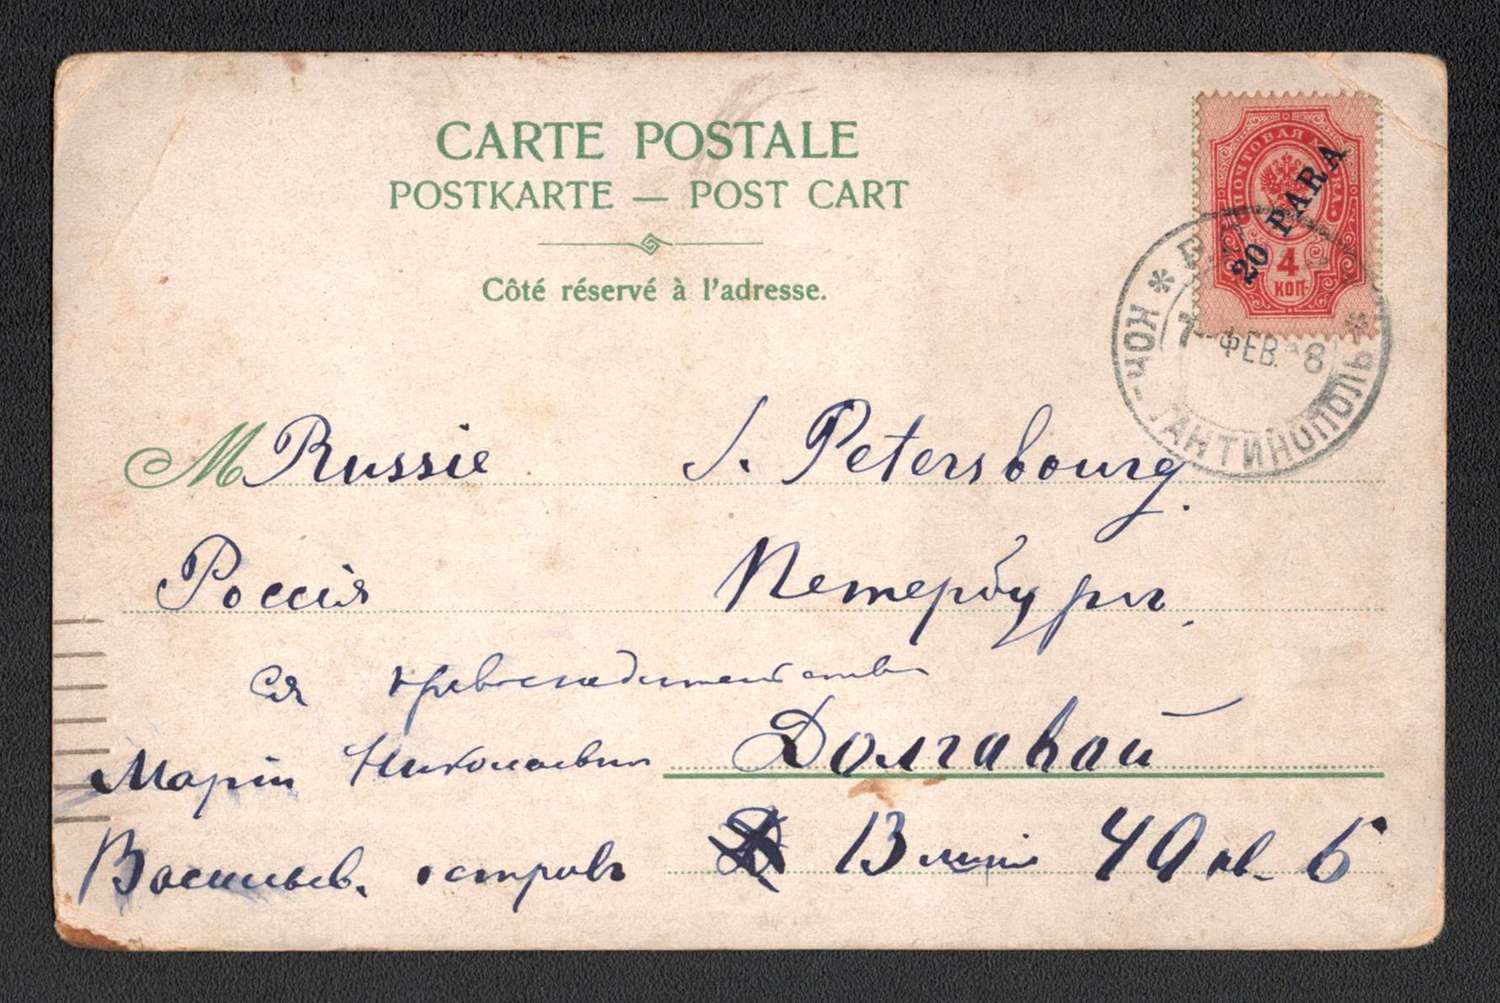 CARTE POSTALE
POSTKARTE — POST CART
Côté réservé à l'adresse.
ПОЧТОВАЯ МАРКА
20 PARA
4
КОП
7 ФЕВ. 8
КОН ТАНТИНОПОЛЬ
M Russie S. Petersbourg.
Россія Петербургъ.
Ея превосходительству
Маріи Николаевне Долгавай
Васильев. островъ 13 линія 40 кв. 6